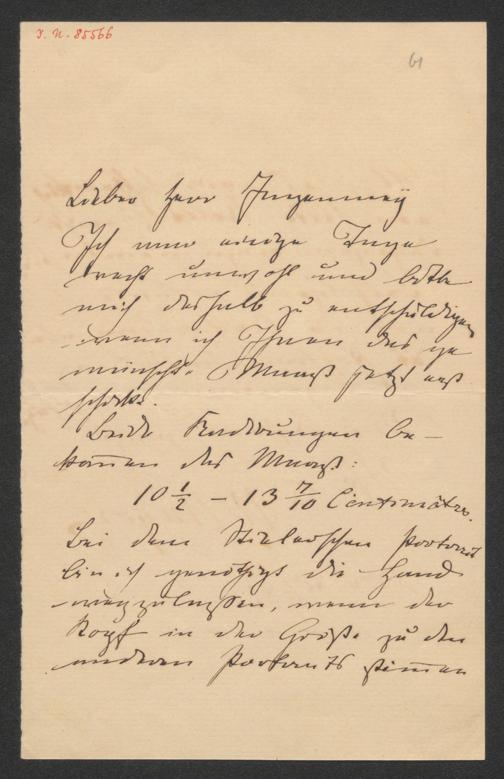 J. N. 85566
61
Lieber Herr Ingenmey
Ich war einige Tage
recht unwohl und bitte
mich deshalb zu entschuldigen
wenn ich Ihnen das ge
wünschte Maaß jetzt erst
schicke.
Beide Radirungen be-
kom̄en das Maaß:
10 1/2 – 13 7/10 Centimätr.
Bei dem Stielerschen Portrait
bin ich genöthigt die Hand
wegzulassen, wenn der
Kopf in der Größe zu den
anderen Portraits stim̄en